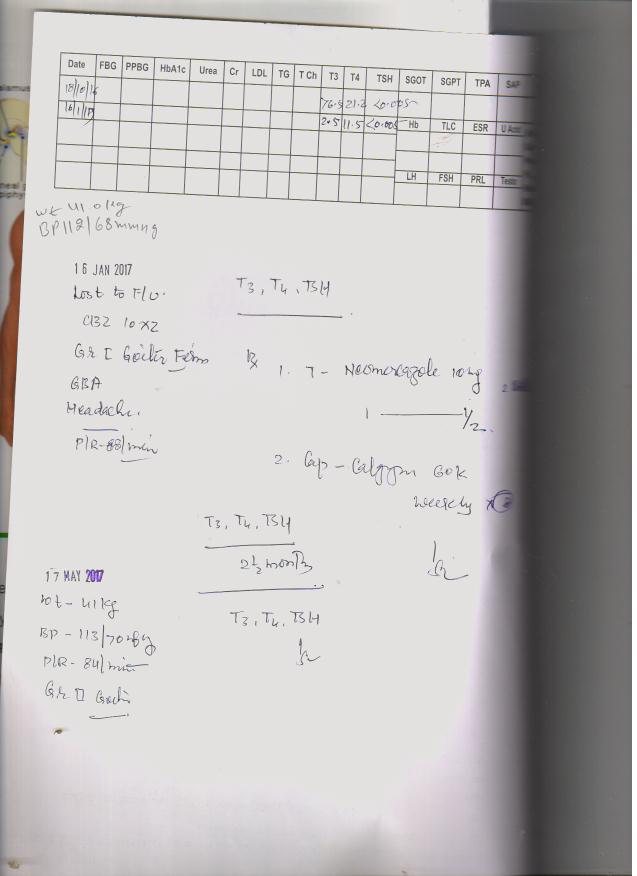 Date FBG PPBG HbA1c Urea Cr LDL TG T Ch T3 T4 TSH SGOT SGPT TPA
18/10/16 76.5 21.2 <0.005
16/1/17 2.5 11.5 <0.005 Hb TLC ESR U Acid
LH FSH PRL Testo
wt 41.0 kg
BP 112/68 mmHg
16 JAN 2017
T3, T4, TSH
Lost to F/U.
CBZ 10 x 2
Gr I Goiter Firm
Rx 1. T - Neomercazole 10 mg
GBA
1 1/2.
Headache.
P/R - 88/min
2. Cap - 60K
weekly x
T3, T4, TSH
2 1/2 months
17 MAY 2017
wt - 41 kg
T3, T4, TSH
BP - 113/70
P/R - 84/min
Gr II Goiter